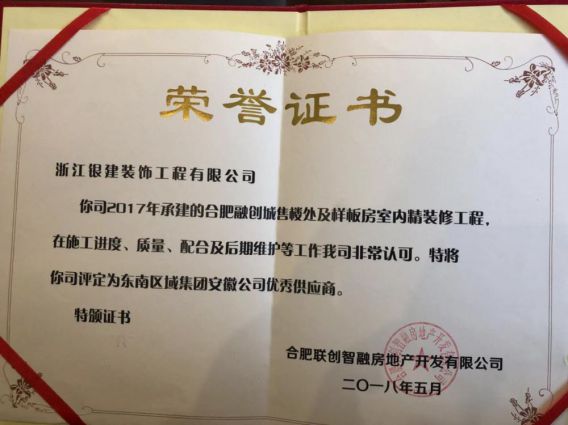 荣誉证书
浙江银建装饰工程有限公司
你司2017年承建的合肥融创城售楼处及样板房室内精装修工程，
在施工进度、质量、配合及后期维护等工作我司非常认可。特将
你司评定为东南区域集团安徽公司优秀供应商。
特颁证书
合肥联创智融房地产开发有限公司
二〇一八年五月